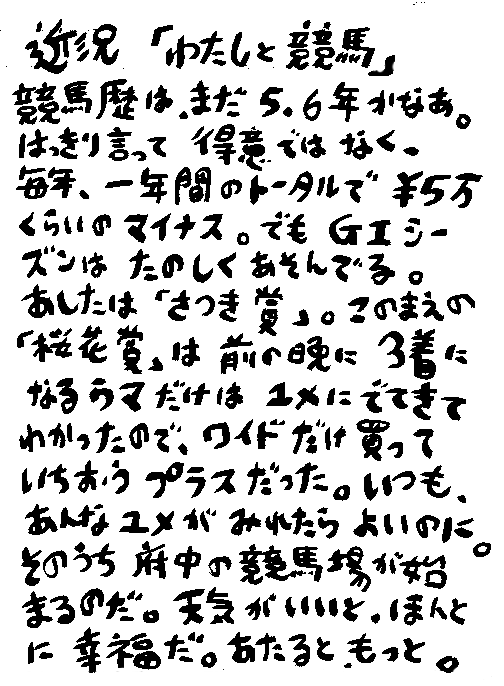 近況「わたしと競馬」
競馬歴は、まだ5.6年かなあ。
はっきり言って得意ではなく、
毎年、一年間のトータルで¥5万
くらいのマイナス。でもGIシー
ズンはたのしくあそんでる。
あしたは「さつき賞」。このまえの
「桜花賞」は前の晩に3着に
なるウマだけはユメにでてきて
わかったので、ワイドだけ買って
いちおうプラスだった。いつも、
あんなユメがみれたらよいのに。
そのうち府中の競馬場が始
まるのだ。天気がいいと、ほんと
に幸福だ。あたると、もっと。